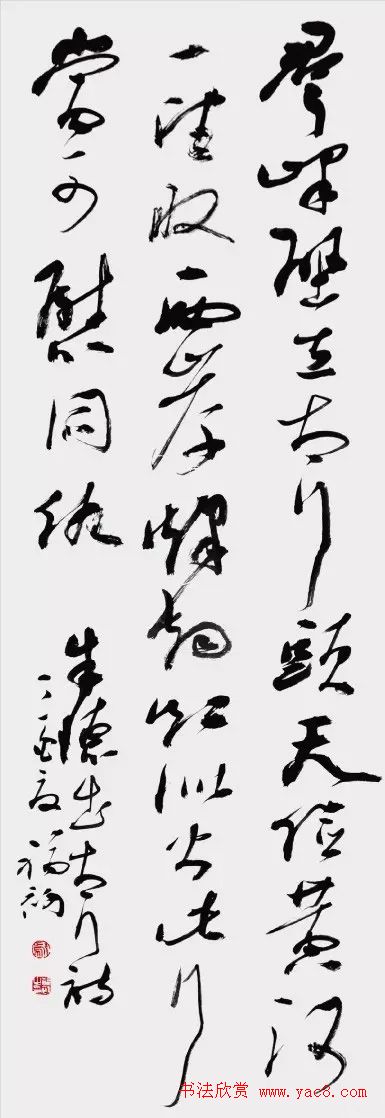 群峰壁立太行頭天險黃河
一望收兩岸烽烟紅似火此行
當可慰同仇
朱德出太行詩
丁酉夏
书法欣赏 www.yac8.com